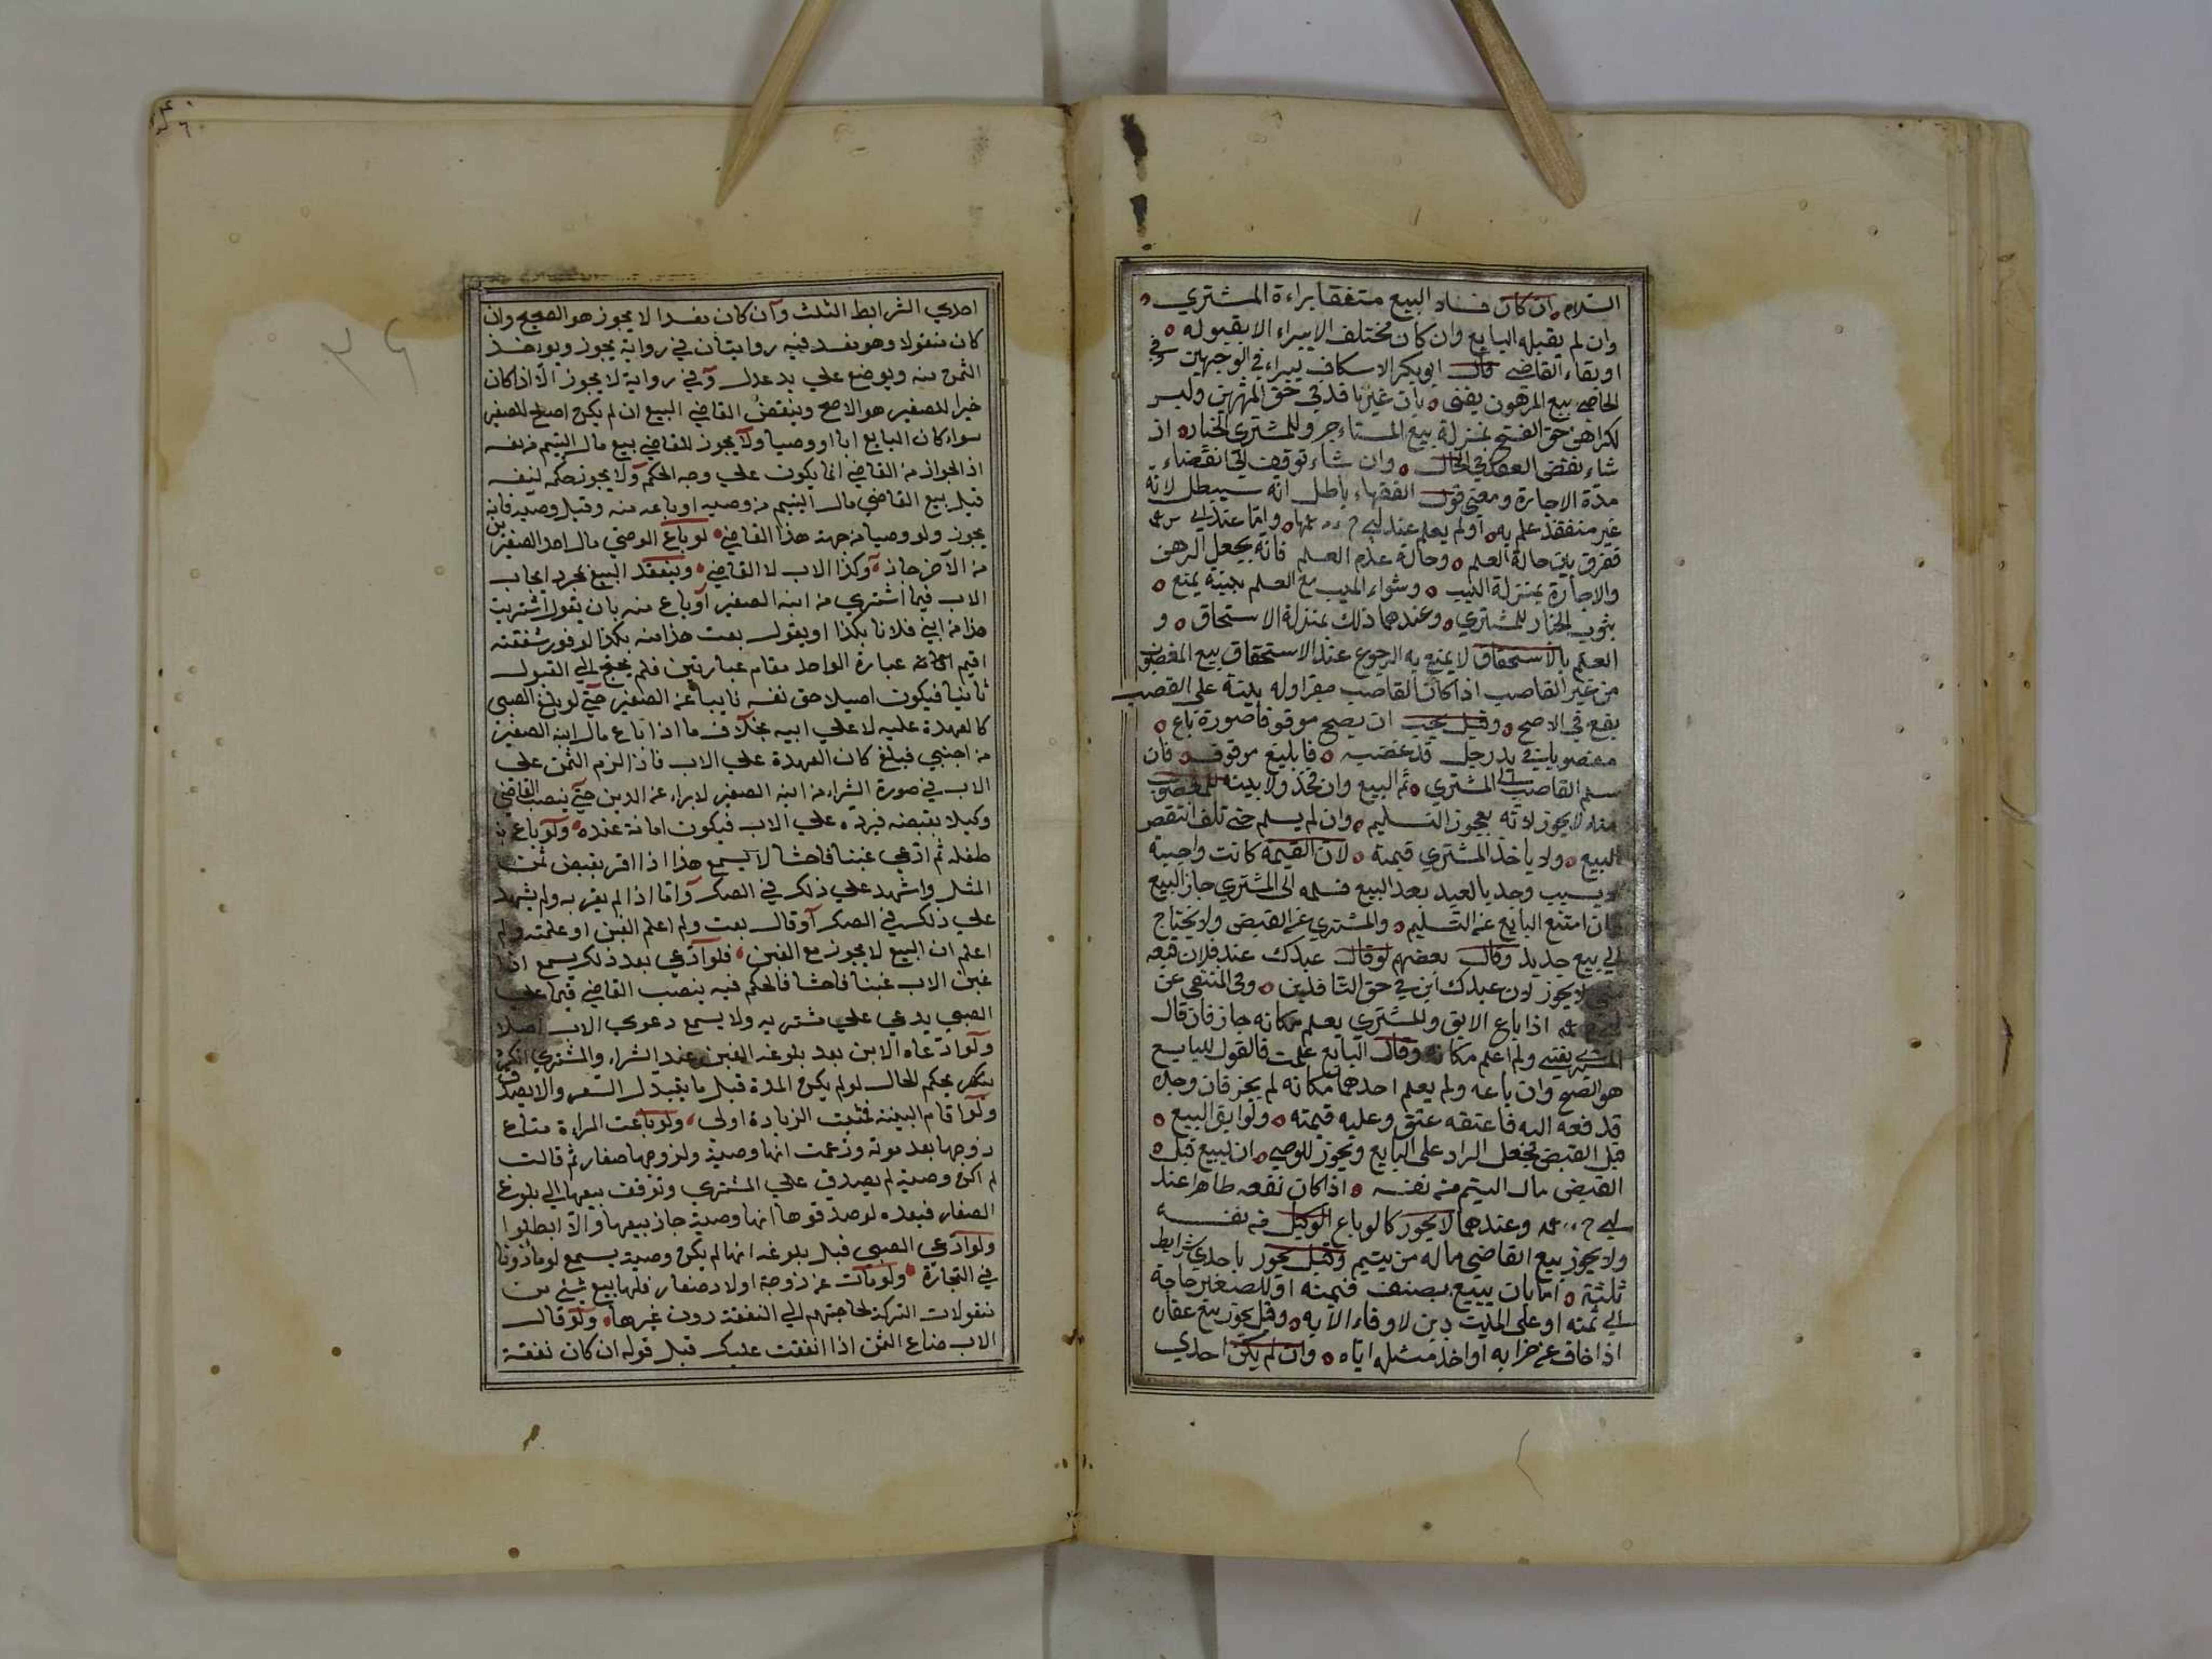 السلام ان كان فساد البيع متفقا براءة المشتري
وان لم يقبله البايع وان كان مختلف الا يبراء الا بقبوله
او بقاء القاضي قال ابو بكر الاسكاف يبراء في الوجهين وفي
بيع المرهون يفتى بان غير نافذ في حق المرتهن وليس
حق الفتح بمنزلة بيع المستاءجر وللمشتري الخيار ان
شاء نقض العقد في الحال وان شاء توقف الى انقضاء
مدة الاجارة ومعنى قول الفقهاء باطل انه سيبطل لانه
غير منفقد علم به او لم يعلم عند وامّا عند ابي س
ففرق بين حالة العلم وحالة عدم العلم فانه يجعل الرهن
والاجارة بمنزلة العيب وشراء المعيب مع العلم بعينه يمنع
ثبوت الخيار للمشتري وعندهما ذلك بمنزلة الاستحاق و
العلم بالاستحقاق لا يمنع به الرجوع عند الاستحقاق بيع المغصوب
من غير القاصب اذا كان القاصب مقرا وله بينة على القصب
يقع في الاصح وقيل يجب ان يصح موقوفا صورة باع
مغصوبا في يد رجل قد غصبه فالبيع موقوف فان
سلم القاصب الى المشتري تم البيع وان جحد ولا بينة للمغصوب
منه لا يجوز لانه بعجوز التسليم وان لم يسلم حتى تلف انتقض
البيع ولا ياخذ المشتري قيمته لان القيمة كانت واجبة
وجد بالعبد بعد البيع فسلمه الى المشتري جاز البيع
فان امتنع البايع عن التسليم والمشتري عن القبض ولا يحتاج
الي بيع جديد وقال بعضهم لو قال عبدك عند فلان فبعه
لا يجوز لان عبدك ابن في حق وفى المنتقي عن
اذا باع الابق والمشتري يعلم مكانه جاز فان قال
ولم اعلم مكانه وقال البايع علمت فالقول للبايع
هو الصح وان باعه ولم يعلم احدهما مكانه لم يجز فان وجده
قد فعه اليه فاعتقه عتق وعليه قيمته ولو ابق البيع
قبل القبض فجعل الراد على البايع ويجوز للوصي ان يبيع قبل
القبض مال اليتيم من نفسه اذا كان نفعه ظاهرا عند
ابي ح وعندهما لا يجوز كما لو باع الوكيل من نفسه
ولا يجوز بيع القاضي ماله من يتيم وقيل يجوز باحدي شرايط
ثلثة اما بان يبيع بصنف قيمته او للصغير حاجة
الي ثمنه او على الميت دين لا وفاء الا به وقيل يجوز بيع عقار
اذا خاف عن خرابه او اخذ مثله اياه وان لم يكن احدي
احدي الشرابط الثلث وان كان نقدا لا يجوز هو الصحيح وان
كان منقولا وهو نفد ففيه روايتان في رواية يجوز ويؤخذ
الثمن منه ويوضع على يد عدل وفي رواية لا يجوز الا اذا كان
خيرا للصغير هو الاصح وينقض القاضي البيع ان لم يكن اصلح للصغير
سواء كان البايع ابا او وصيا ولا يجوز للقاضي بيع مال اليتيم من نفسه
اذ الجواز من القاضي انما يكون على وجه الحكم ولا يجوز حكمه لنفسه
قيل بيع القاضي مال اليتيم من وصيه او باعه منه وقبل وصيه فانه
يجوز ولو وصيا من جهة هذا القاضي لو باع الوصي مال احد الصغيرين
من الآخر جاز وكذا الاب لا القاضي وينفقد البيع بمجرد ايجاب
الاب فيما اشتري من ابنه الصغير او باع منه بان يقول اشتريت
هذا من ابني فلانا بكذا او يقول بعت هذا منه بكذا لوفور شفقته
اقيم عبارة الواحد مقام عبارتين فلم يحتج الي القبول
ثانيا فيكون اصيلا حق نفسه نايبا عن الصغير حتي لو بلغ الصبي
كالعهدة عليه لا على ابيه بخلاف ما اذا باع مال ابنه الصغير
من اجنبي فبلغ كان العهدة على الاب فاذا الزم الثمن على
الاب في صورة الشراء من ابنه الصغير لا يراء عن الدين حتي ينصب القاضي
وكيلا يقبضه فيرده على الاب فيكون امانة عنده ولو باع
طفله ثم ادعي غبنا فاحشا لا يسمع هذا اذا اقر بقبض ثمن
المثل واشهد على ذلك في الصك واما اذا لم يقر به ولم يشهد
علي ذلك في الصك او قال بعت ولم اعلم الغبن او علمته ولم
اعلم ان البيع لا يجوز مع الغبن فلو ادعي بعد ذلك يسمع اذا
غبن الاب غبنا فاحشا فالحكم فيه ينصب القاضي قيما على
الصبي يدعي علي مشتريه ولا يسمع دعوي الاب اصلا
ولو ادعاه الابن بعد بلوغه الغبن عند الشراء والمشتري
يحكم للحال لو لم يكن المدة قبل ما يتبدل السعر والا يصدق
ولو اقام البينة فمثبت الزيادة اولى ولو باعت المراءة متاع
زوجها بعد موته وزعمت انها وصية ولزوجها صغار ثم قالت
لم اكن وصية لم يصدق علي المشتري وتوقف بيعها الي بلوغ
الصغار فبعده لو صدقوها انها وصية جاز بيعها والا ابطلوا
ولو ادعي الصبي قبل بلوغه انها لم يكن وصية يسمع لو ماذونا
في التجارة ولو مات عن زوجة اولاد صغار فلها بيع شئ من
منقولات التركة لحاجتهم الي النفقة دون غيرها ولو قال
الاب ضاع الثمن اذا انفقت عليك قبل قوله ان كان نفقة